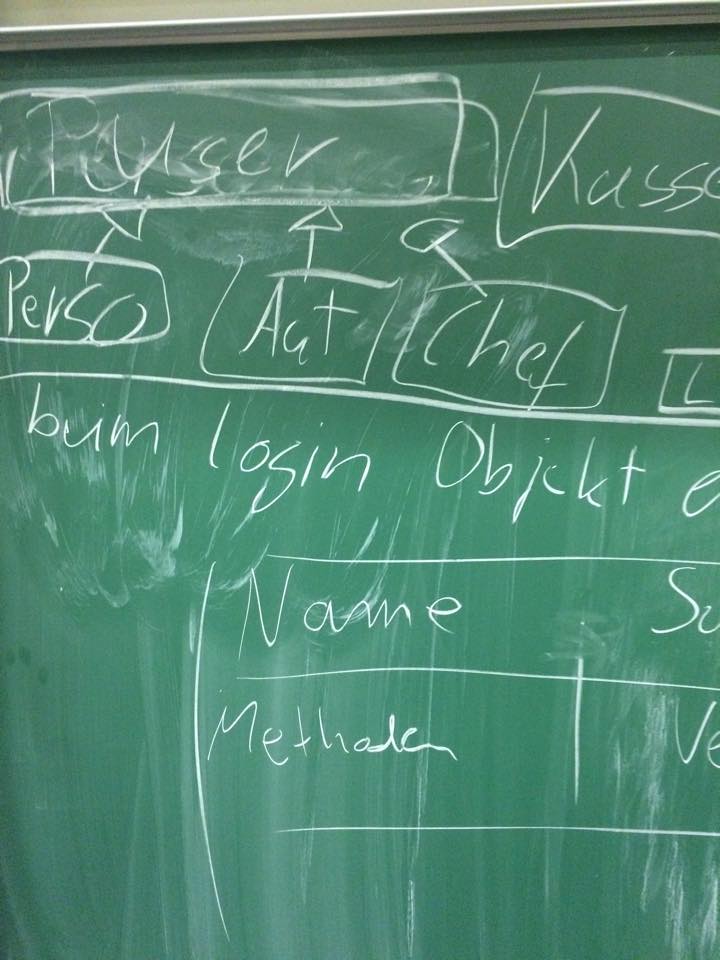 Kasse
Perso Chef L
beim login Objekt e
Name
Methoden Ve